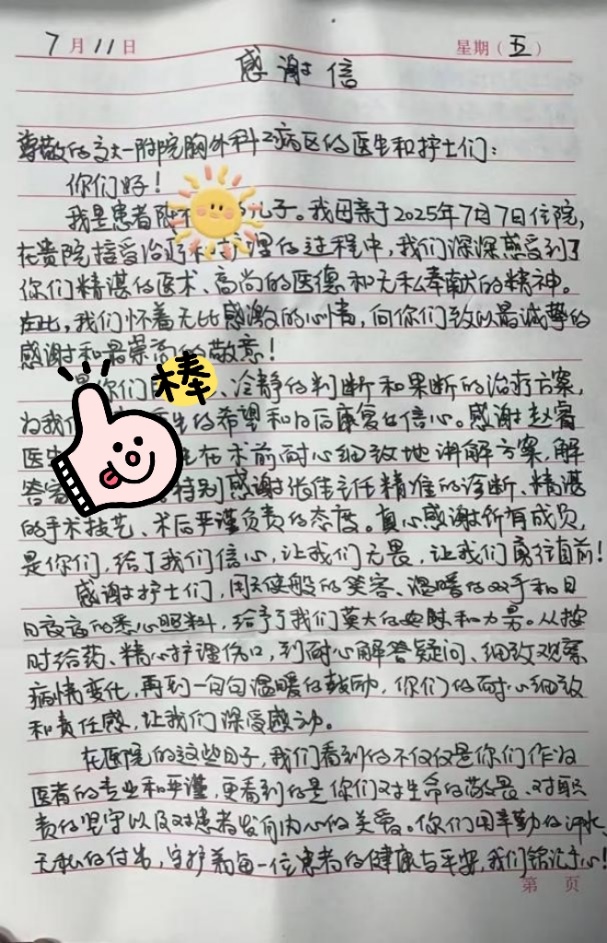 7月11日 星期(五)
感谢信
尊敬的交大一附院胸外科二病区的医生和护士们:
你们好!
我是患者陈 儿子。我母亲于2025年7月7日住院,
在贵院接受治疗和护理的过程中,我们深深感受到了
你们精湛的医术、高尚的医德和无私奉献的精神。
在此,我们怀着无比感激的心情,向你们致以最诚挚的
感谢和最崇高的敬意!
是你们 棒、冷静的判断和果断的治疗方案,
为我们 生的希望和日后康复的信心。感谢赵睿
医生 在术前耐心细致地讲解方案、解
答 特别感谢张佳主任精准的诊断、精湛
的手术技艺、术后严谨负责的态度。真心感谢所有成员,
是你们,给了我们信心,让我们无畏,让我们勇往直前!
感谢护士们,用天使般的笑容、温暖的双手和日
日夜夜的悉心照料,给予了我们莫大的安慰和力量。从按
时给药、精心护理伤口,到耐心解答疑问、细致观察
病情变化,再到一句句温暖的鼓励,你们的耐心细致
和责任感,让我们深受感动。
在医院的这些日子,我们看到的不仅仅是你们作为
医者的专业和严谨,更看到的是你们对生命的敬畏、对职
责的坚守以及对患者发自内心的关爱。你们用辛勤的汗水
无私的付出,守护着每一位患者的健康与平安,我们铭记于心!
第 页